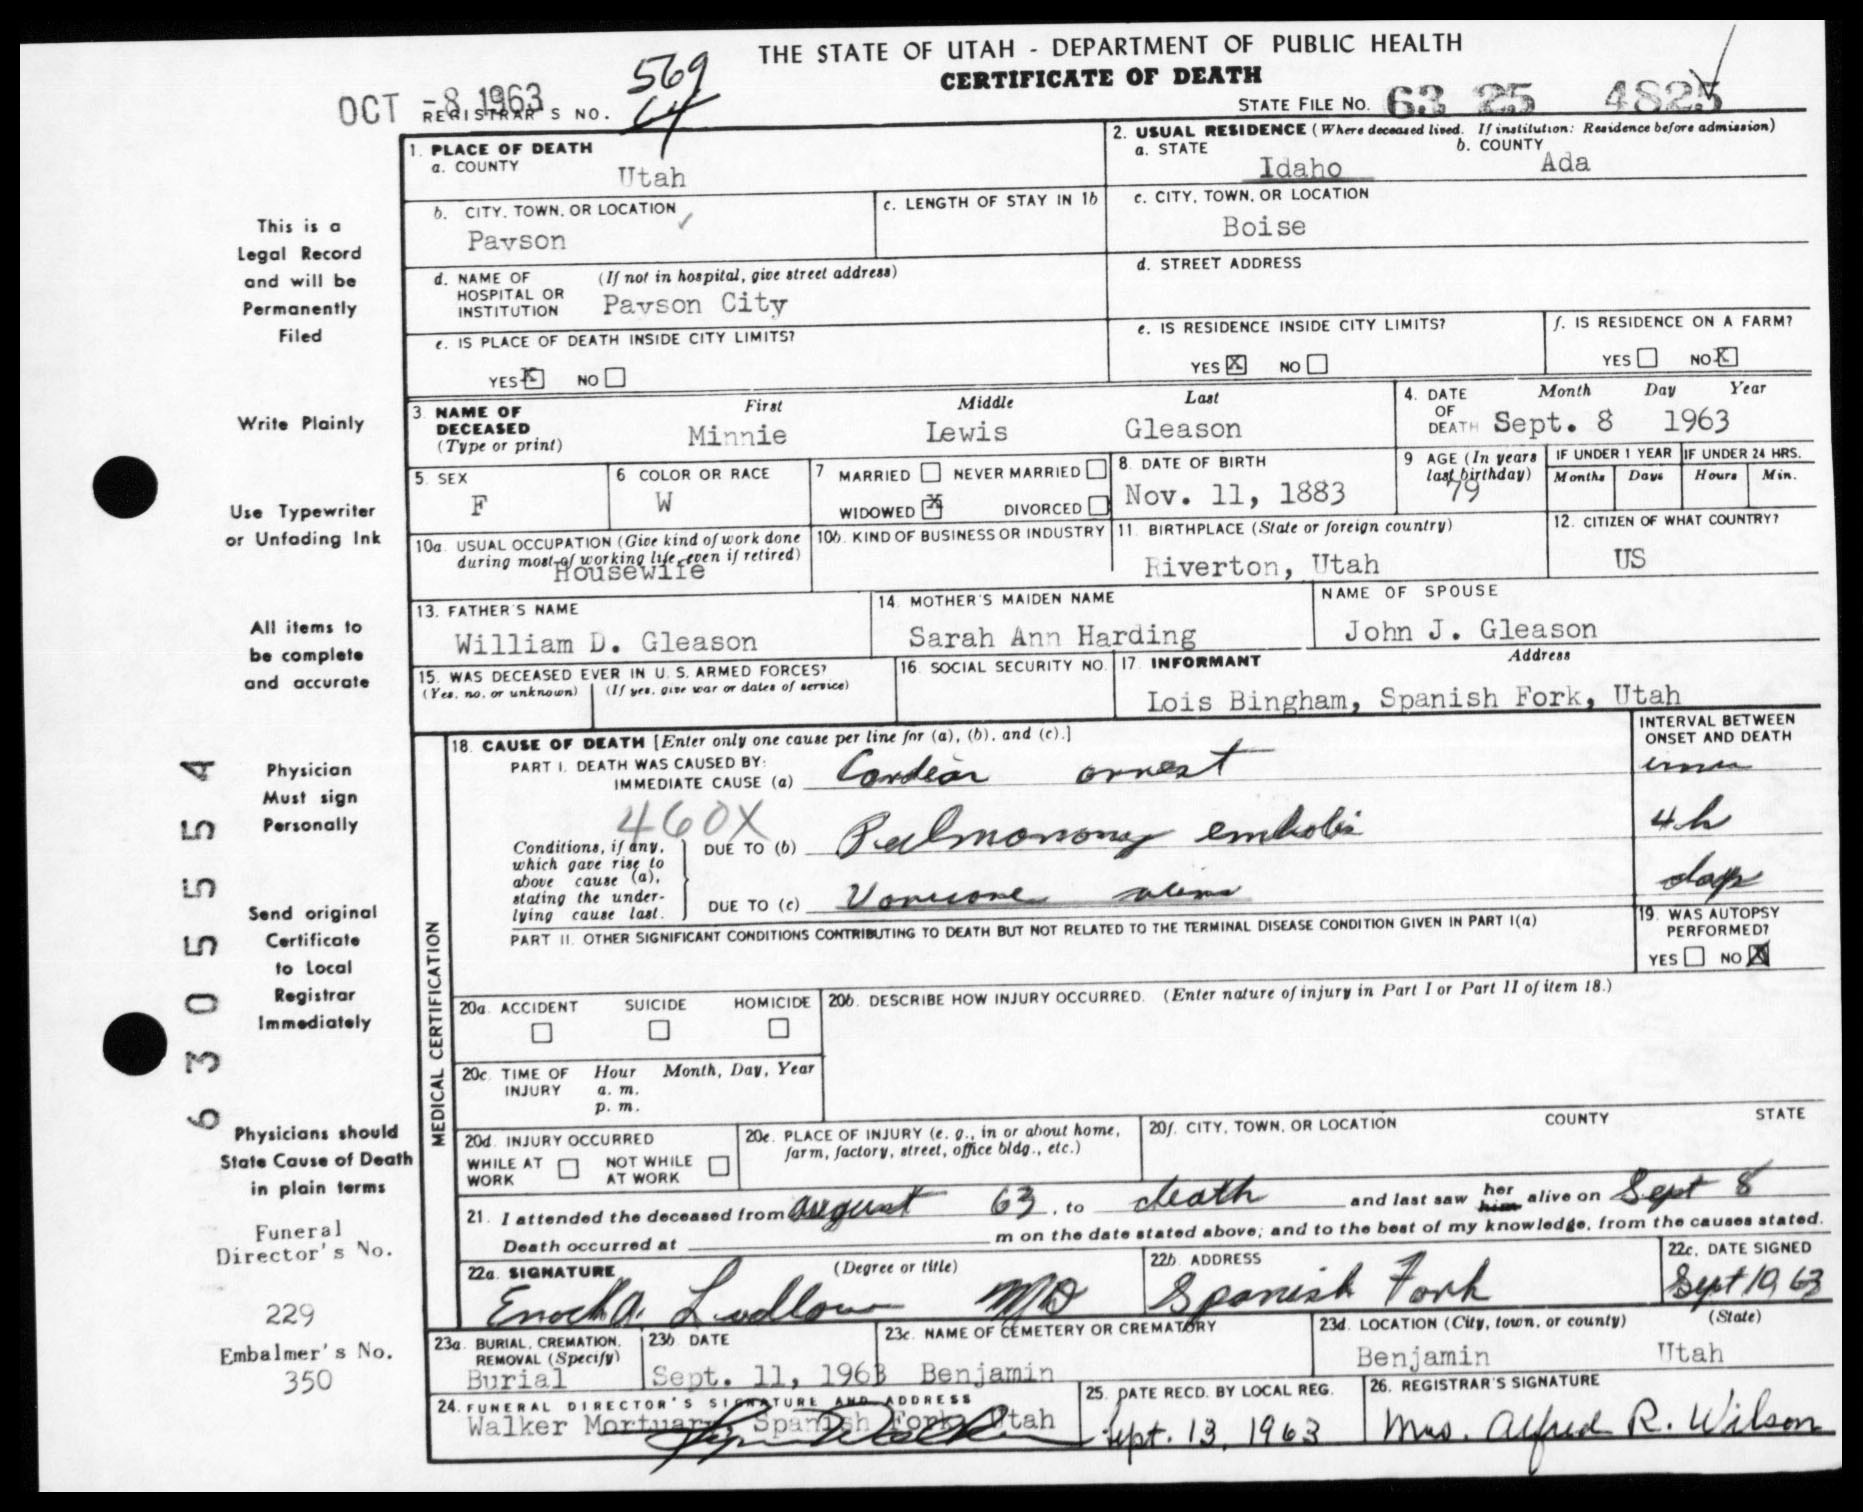 THE STATE OF UTAH - DEPARTMENT OF PUBLIC HEALTH
CERTIFICATE OF DEATH
OCT -8 1963
REGISTRAR'S NO. 569
64
STATE FILE NO. 63 25 4825
This is a
Legal Record
and will be
Permanently
Filed
Write Plainly
Use Typewriter
or Unfading Ink
All items to
be complete
and accurate
Physician
Must sign
Personally
Send original
Certificate
to Local
Registrar
Immediately
Physicians should
State Cause of Death
in plain terms
Funeral
Director's No.
229
Embalmer's No.
350
6305554
1. PLACE OF DEATH
a. COUNTY
Utah
2. USUAL RESIDENCE (Where deceased lived. If institution: Residence before admission)
a. STATE b. COUNTY
Idaho Ada
b. CITY, TOWN, OR LOCATION
Payson
c. LENGTH OF STAY IN 1b
c. CITY, TOWN, OR LOCATION
Boise
d. NAME OF (If not in hospital, give street address)
HOSPITAL OR
INSTITUTION Payson City
d. STREET ADDRESS
e. IS PLACE OF DEATH INSIDE CITY LIMITS?
YES X NO
e. IS RESIDENCE INSIDE CITY LIMITS?
YES X NO
f. IS RESIDENCE ON A FARM?
YES NO X
3. NAME OF First Middle Last
DECEASED
(Type or print) Minnie Lewis Gleason
4. DATE Month Day Year
OF
DEATH Sept. 8 1963
5. SEX
F
6 COLOR OR RACE
W
7 MARRIED NEVER MARRIED
WIDOWED X DIVORCED
8. DATE OF BIRTH
Nov. 11, 1883
9 AGE (In years
last birthday)
79
IF UNDER 1 YEAR IF UNDER 24 HRS.
Months Days Hours Min.
10a. USUAL OCCUPATION (Give kind of work done
during most of working life, even if retired)
Housewife
10b. KIND OF BUSINESS OR INDUSTRY
11. BIRTHPLACE (State or foreign country)
Riverton, Utah
12. CITIZEN OF WHAT COUNTRY?
US
13. FATHER'S NAME
William D. Gleason
14. MOTHER'S MAIDEN NAME
Sarah Ann Harding
NAME OF SPOUSE
John J. Gleason
15. WAS DECEASED EVER IN U. S. ARMED FORCES?
(Yes, no, or unknown) (If yes, give war or dates of service)
16. SOCIAL SECURITY NO.
17. INFORMANT Address
Lois Bingham, Spanish Fork, Utah
MEDICAL CERTIFICATION
18. CAUSE OF DEATH [Enter only one cause per line for (a), (b), and (c).]
INTERVAL BETWEEN
ONSET AND DEATH
PART I. DEATH WAS CAUSED BY:
IMMEDIATE CAUSE (a) Cardiac arrest
460X
Conditions, if any,
which gave rise to
above cause (a),
stating the under-
lying cause last.
DUE TO (b) Pulmonary emboli 4 h
DUE TO (c) Varicose veins days
PART II. OTHER SIGNIFICANT CONDITIONS CONTRIBUTING TO DEATH BUT NOT RELATED TO THE TERMINAL DISEASE CONDITION GIVEN IN PART I(a)
19. WAS AUTOPSY
PERFORMED?
YES NO X
20a. ACCIDENT SUICIDE HOMICIDE
20b. DESCRIBE HOW INJURY OCCURRED. (Enter nature of injury in Part I or Part II of item 18.)
20c. TIME OF Hour Month, Day, Year
INJURY a. m.
p. m.
20d. INJURY OCCURRED
WHILE AT NOT WHILE
WORK AT WORK
20e. PLACE OF INJURY (e. g., in or about home,
farm, factory, street, office bldg., etc.)
20f. CITY, TOWN, OR LOCATION COUNTY STATE
21. I attended the deceased from august 63, to death and last saw her him alive on Sept 8
Death occurred at m on the date stated above; and to the best of my knowledge, from the causes stated.
22a. SIGNATURE (Degree or title)
Enoch A. Ludlow MD
22b. ADDRESS
Spanish Fork
22c. DATE SIGNED
Sept 10 63
23a. BURIAL, CREMATION,
REMOVAL (Specify)
Burial
23b. DATE
Sept. 11, 1963
23c. NAME OF CEMETERY OR CREMATORY
Benjamin
23d. LOCATION (City, town, or county) (State)
Benjamin Utah
24. FUNERAL DIRECTOR'S SIGNATURE AND ADDRESS
Walker Mortuary Spanish Fork, Utah
25. DATE RECD. BY LOCAL REG.
Sept. 13, 1963
26. REGISTRAR'S SIGNATURE
Mrs. Alfred R. Wilson